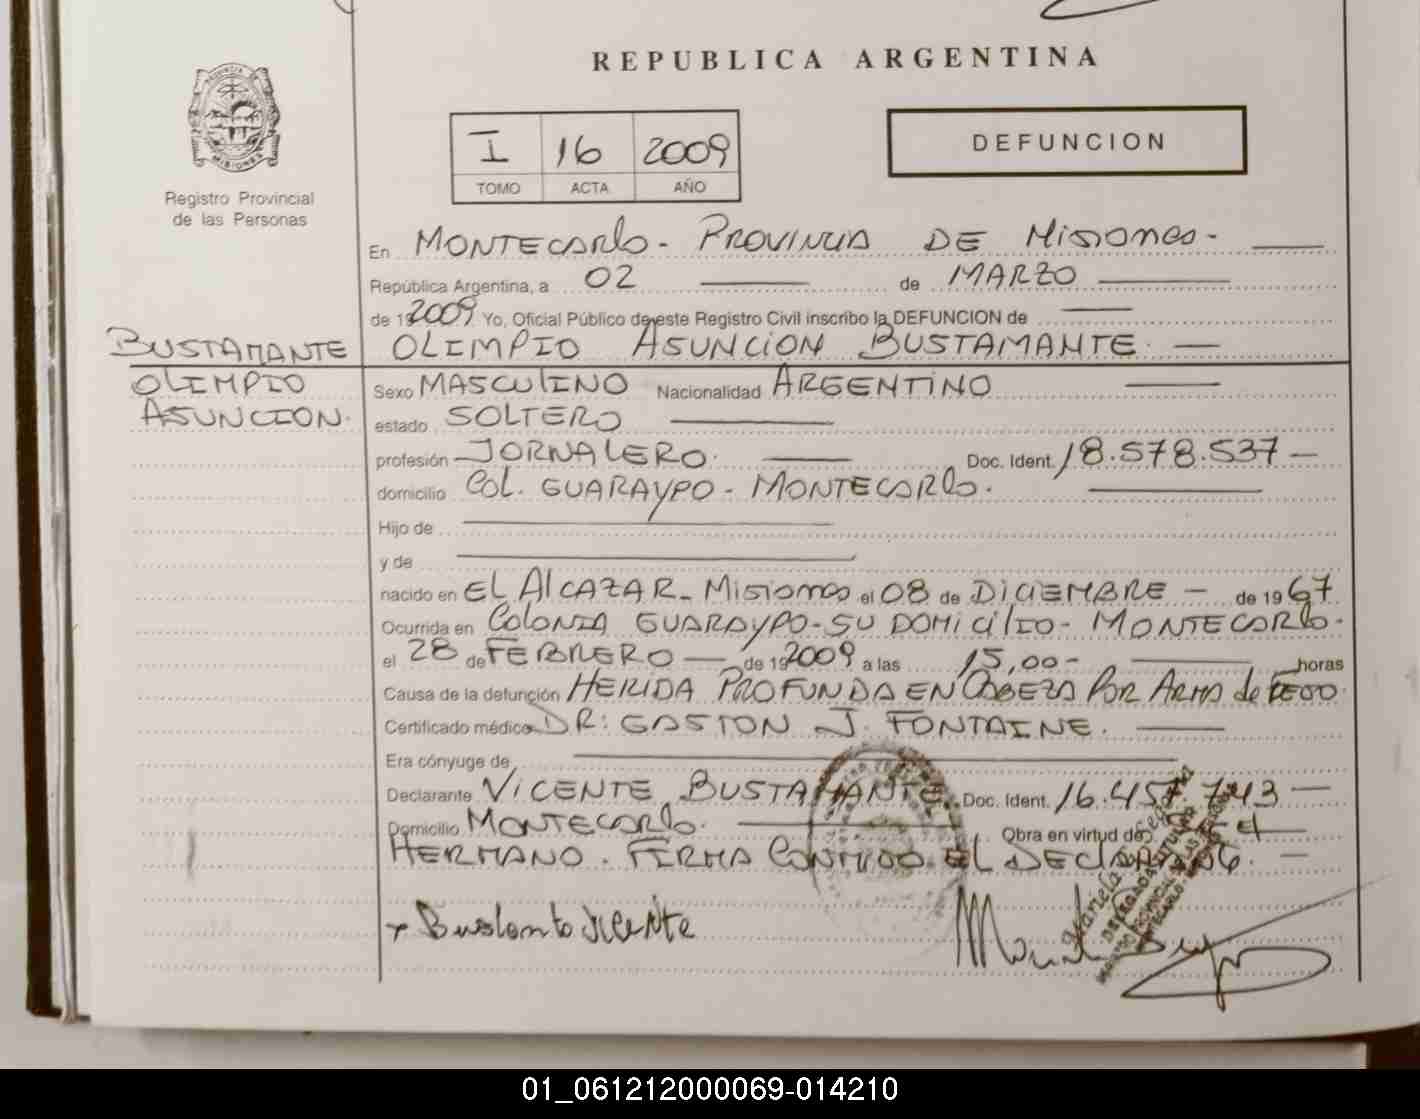 REPUBLICA ARGENTINA
I 16 2009
TOMO ACTA AÑO
DEFUNCION
PROVINCIA DE
MISIONES
Registro Provincial
de las Personas
En MONTECARLO - PROVINCIA DE MISIONES -
República Argentina, a 02 de MARZO
de 192009 Yo, Oficial Público de este Registro Civil inscribo la DEFUNCION de
BUSTAMANTE OLIMPIO ASUNCION BUSTAMANTE.
OLIMPIO
ASUNCION.
Sexo MASCULINO Nacionalidad ARGENTINO
estado SOLTERO
profesión JORNALERO. Doc. Ident. 18.578.537
domicilio Col. GUARAYPO - MONTECARLO.
Hijo de
y de
nacido en EL ALCAZAR - MISIONES el 08 de DICIEMBRE - de 1967
Ocurrida en COLONIA GUARAYPO - SU DOMICILIO - MONTECARLO.
el 28 de FEBRERO de 192009 a las 15,00- horas
Causa de la defunción HERIDA PROFUNDA EN CABEZA POR ARMA de FEGO.
Certificado médico DR: GASTON J. FONTAINE.
Era cónyuge de
Declarante VICENTE BUSTAMANTE. Doc. Ident. 16.457.743
Domicilio MONTECARLO. Obra en virtud de SER EL
HERMANO. FIRMA CONMIGO EL DECLARANTE.
Bustamante Vicente
01_061212000069-014210